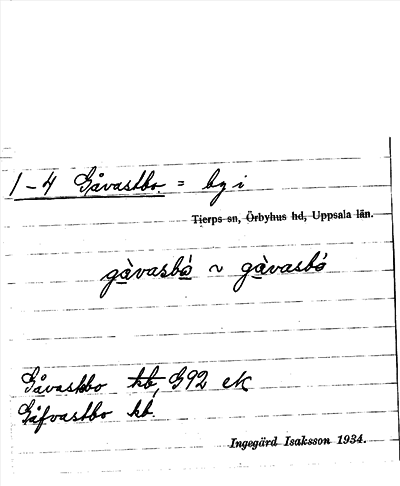 1-4 Gåvastbo. = by i
Tierps sn, Örbyhus hd, Uppsala län.
gàvasbó ~ gàvasbó
Gåvastbo kb, G92 ek
Gåfvastbo kb.
Ingegärd Isaksson 1934.